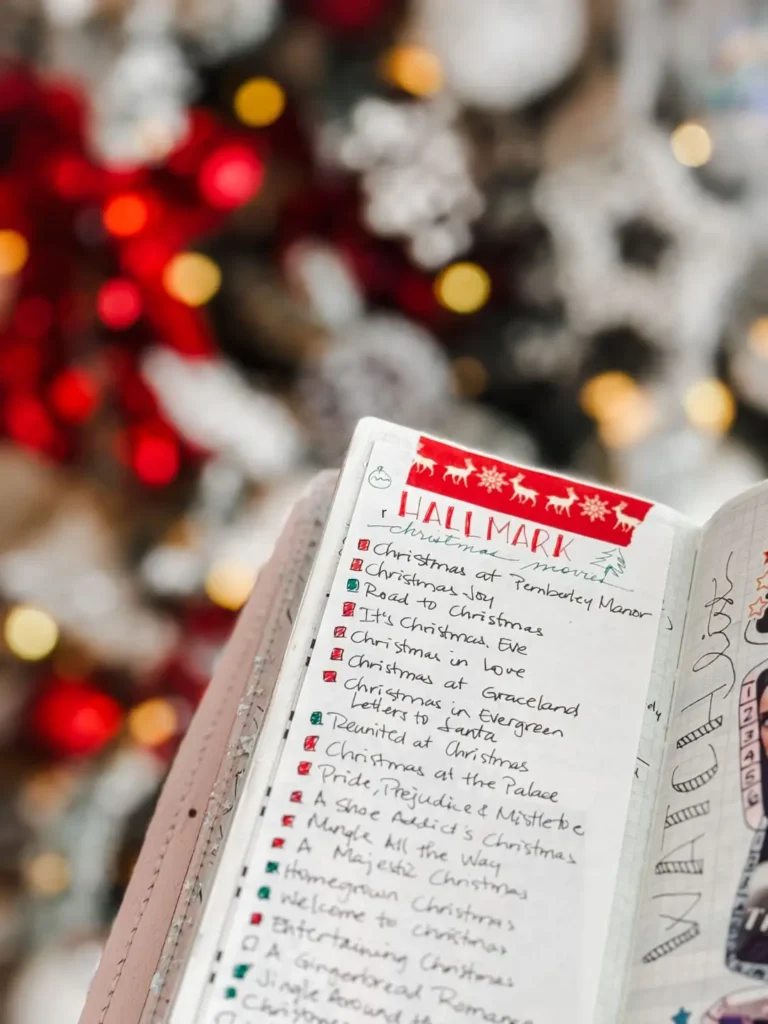 HALLMARK
christmas movies
Christmas at Pemberley Manor
Christmas Joy
Road to Christmas
It's Christmas, Eve
Christmas in Love
Christmas at Graceland
Christmas in Evergreen
Letters to Santa
Reunited at Christmas
Christmas at the Palace
Pride, Prejudice & Mistletoe
A Shoe Addict's Christmas
Mingle All the Way
A Majestic Christmas
Homegrown Christmas
Welcome to Christmas
Entertaining Christmas
A Gingerbread Romance
Jingle Around the
WATCH list
1
2
3
4
5
6